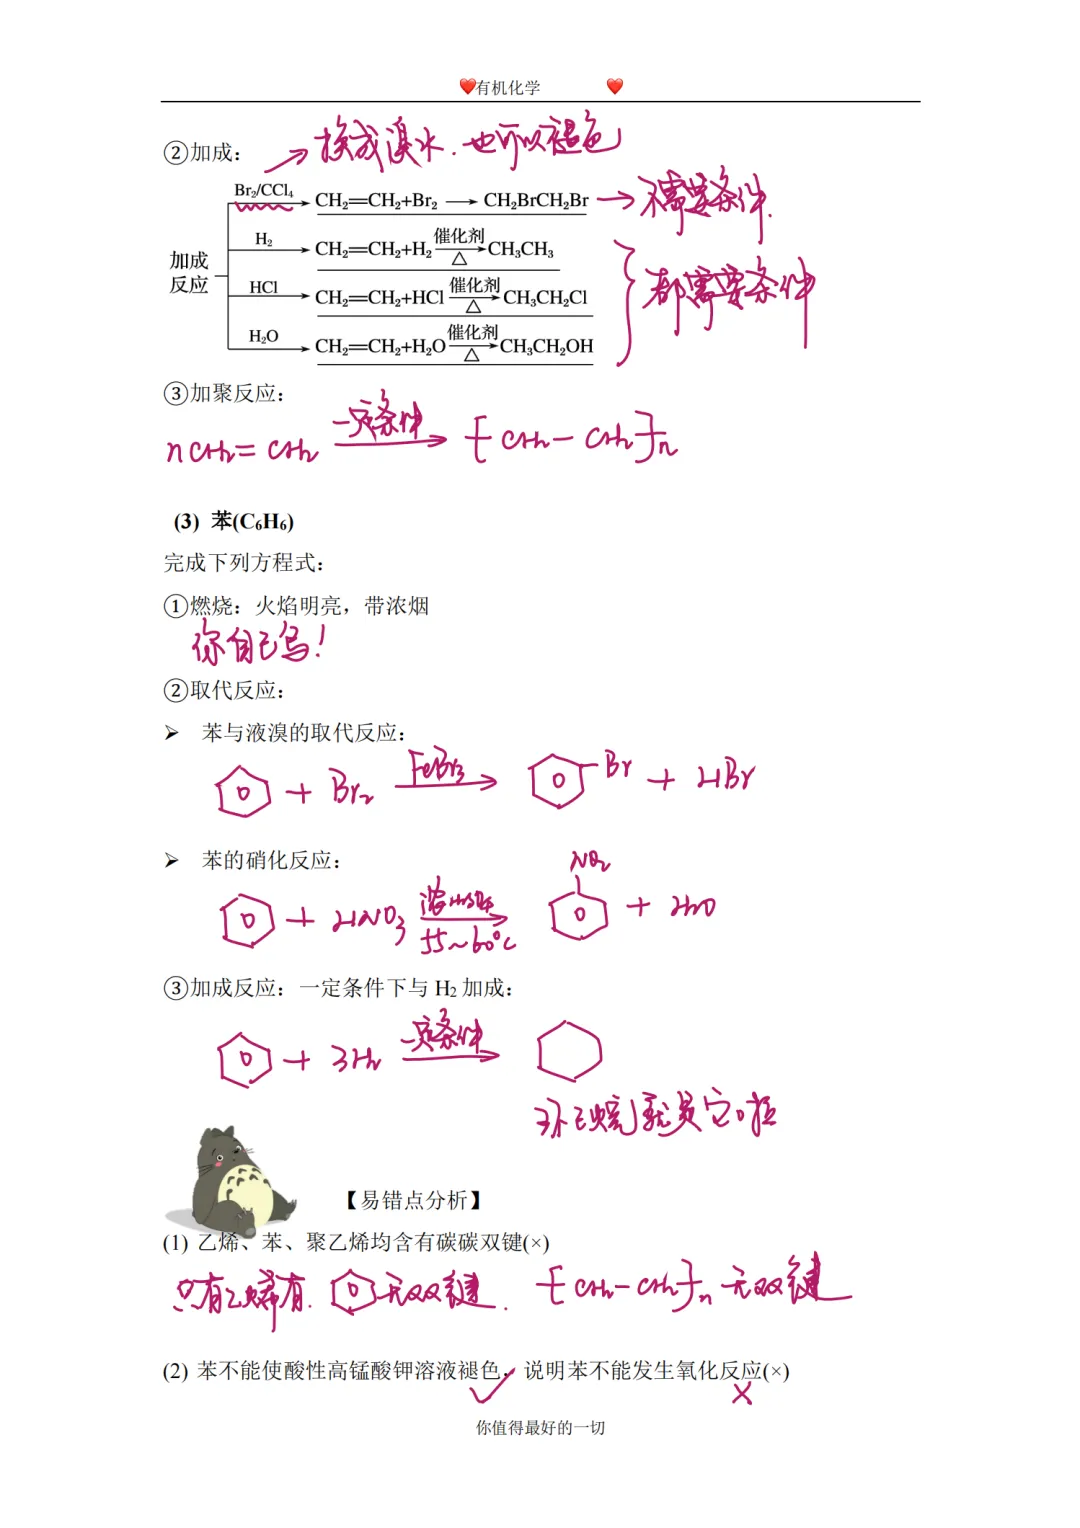 ❤️有机化学 ❤️
②加成: → 换成溴水.也可以褪色
Br₂/CCl₄ CH₂=CH₂+Br₂ → CH₂BrCH₂Br → 不需要条件.
H₂ CH₂=CH₂+H₂ 催化剂 △ → CH₃CH₃
加成反应
都需要条件
HCl CH₂=CH₂+HCl 催化剂 △ → CH₃CH₂Cl
H₂O CH₂=CH₂+H₂O 催化剂 △ → CH₃CH₂OH
③加聚反应:
nCH₂=CH₂ 一定条件 → [CH₂-CH₂]n
(3) 苯(C₆H₆)
完成下列方程式:
①燃烧:火焰明亮,带浓烟
你自己写!
②取代反应:
➢ 苯与液溴的取代反应:
+ Br₂ FeBr₃ → Br + HBr
➢ 苯的硝化反应:
NO₂
+ HNO₃ 浓H₂SO₄ 55~60°C → + H₂O
③加成反应:一定条件下与 H₂ 加成:
+ 3H₂ 一定条件 →
环己烷就是它啦
【易错点分析】
(1) 乙烯、苯、聚乙烯均含有碳碳双键(×)
只有乙烯有. 无双键. [CH₂-CH₂]n 无双键
(2) 苯不能使酸性高锰酸钾溶液褪色,说明苯不能发生氧化反应(×)
✓ ×
你值得最好的一切